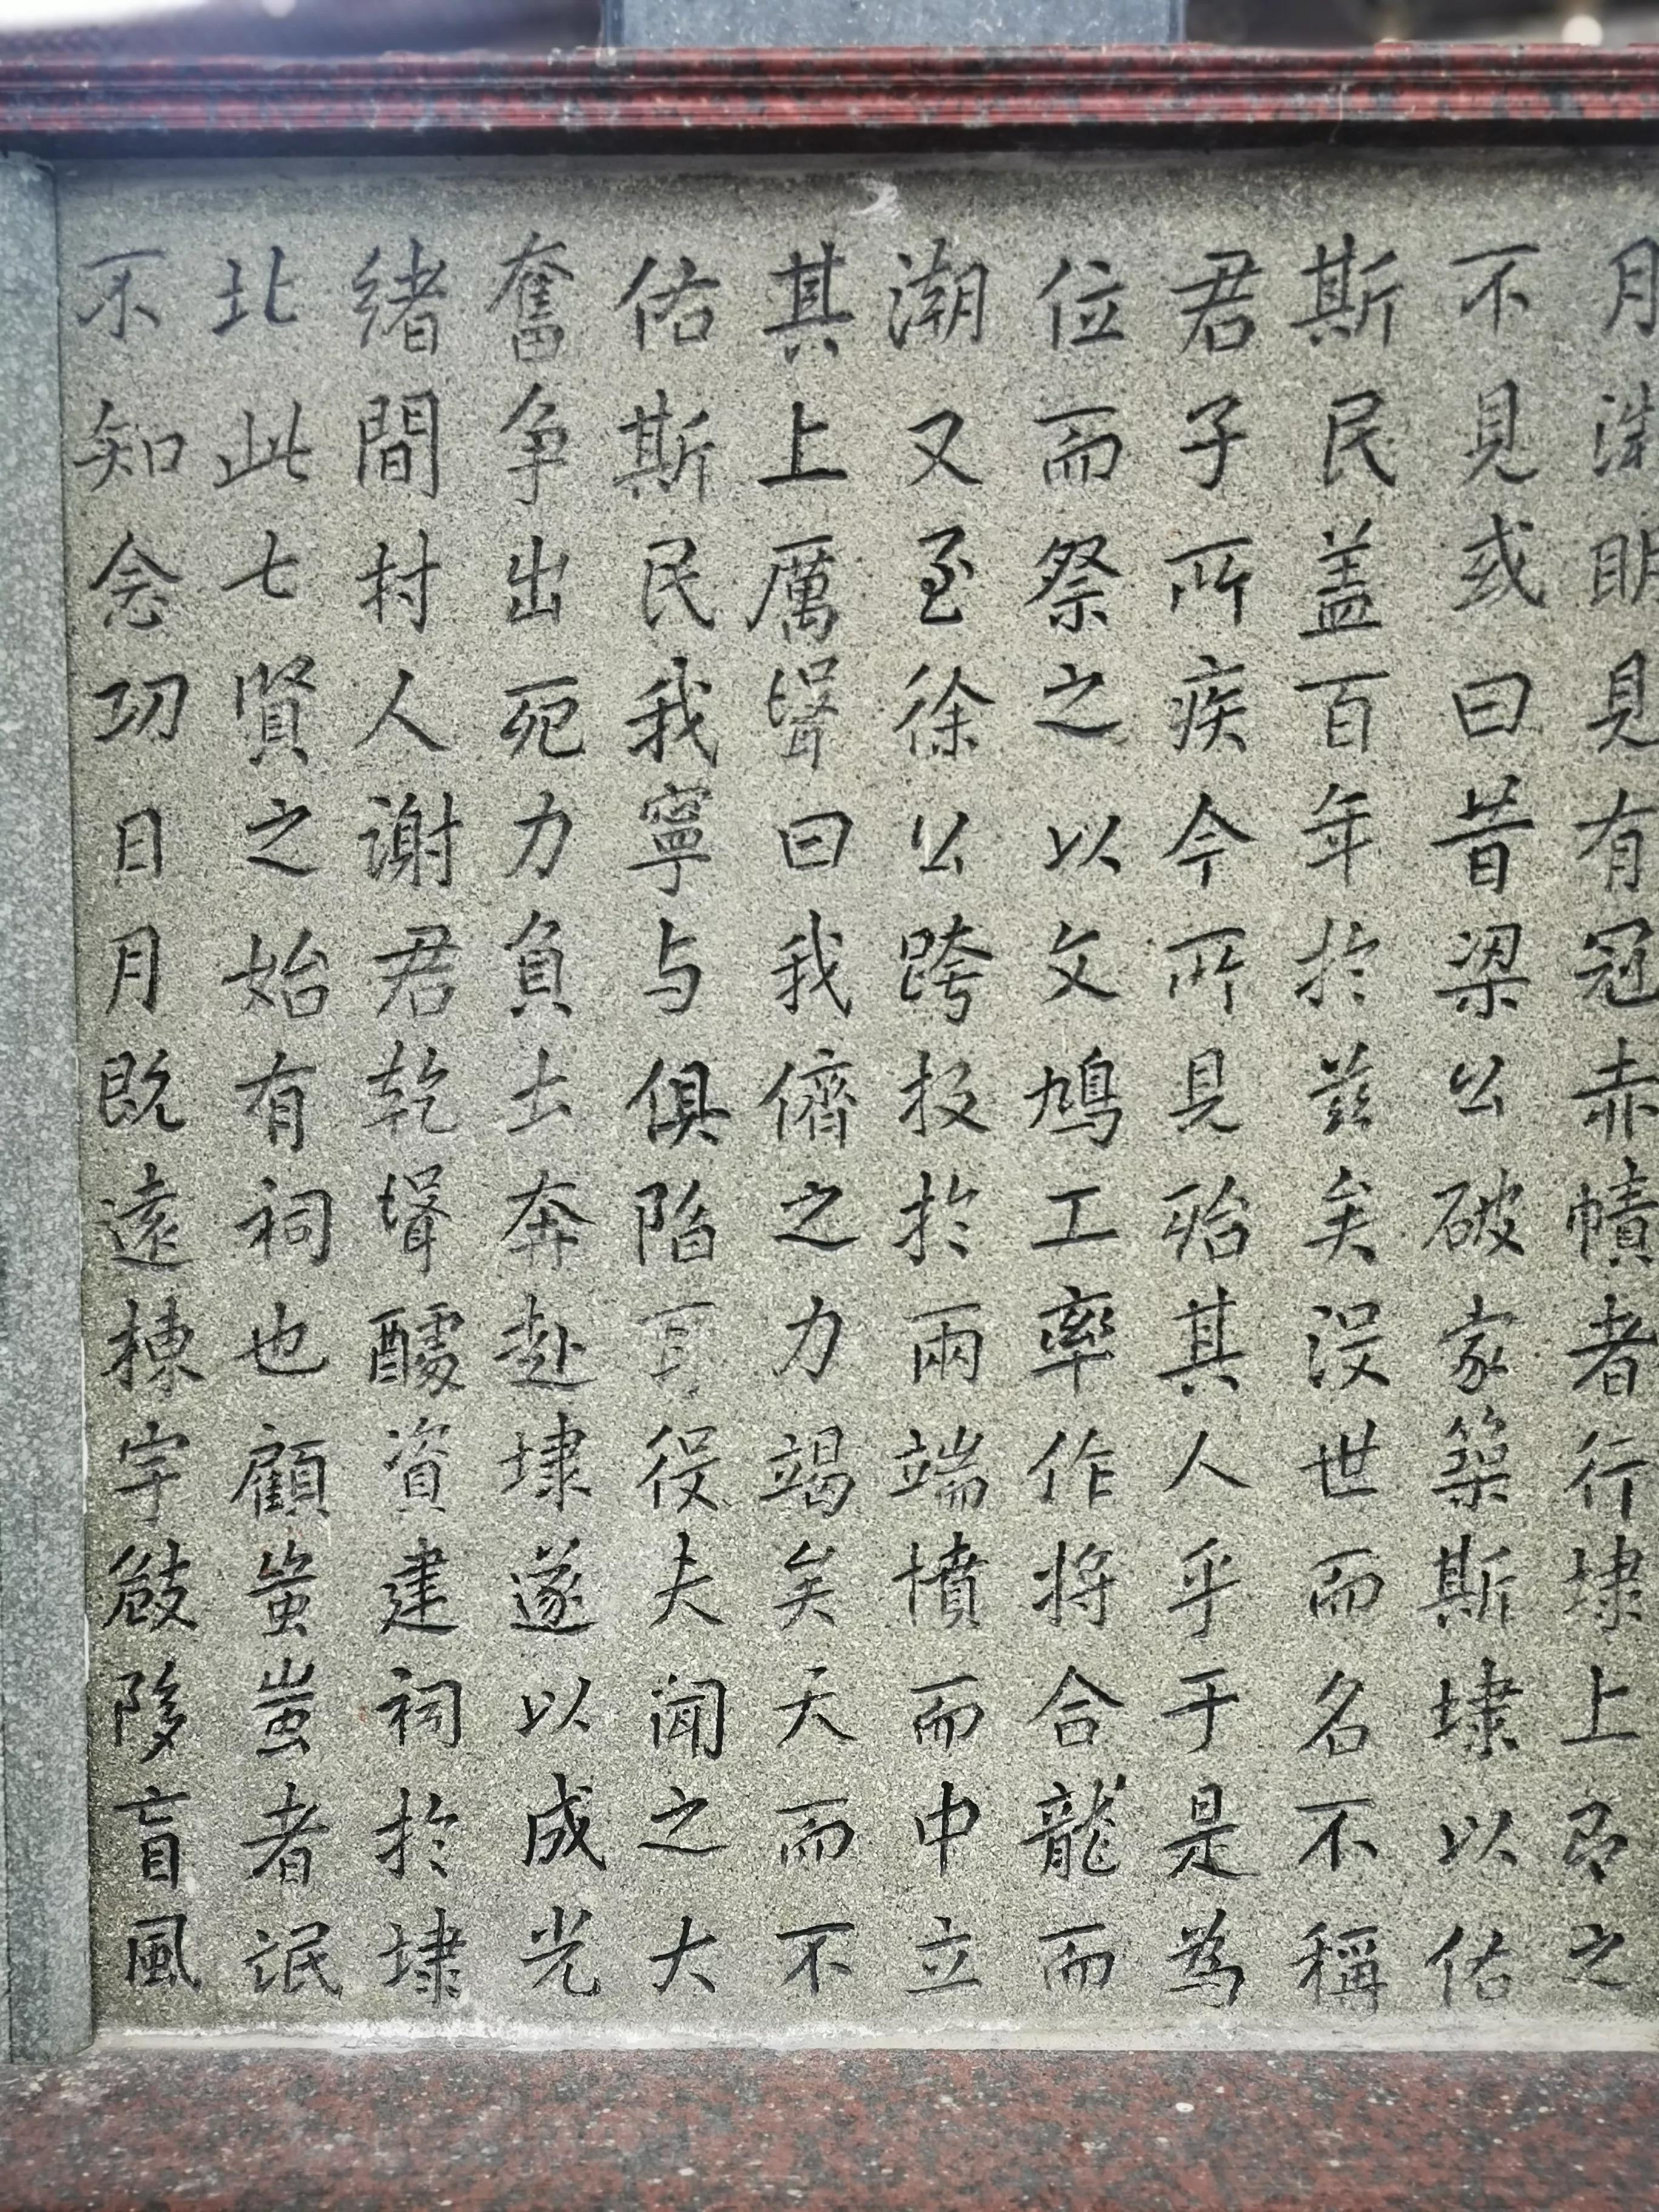 月明見有冠赤幘者行埭上即之
不見或曰昔梁公破家築斯埭以佑
斯民盖百年於兹矣没世而名不稱
君子所疾今所見殆其人乎于是為
位而祭之以文鳩工率作将合龍而
潮又至徐公跨投於兩端憤而中立
其上厲聲曰我儕之力竭矣天而不
佑斯民我寧与俱陷耳役夫闻之大
奮争出死力負土奔赴埭遂以成光
緒間村人谢君乾聲醵資建祠於埭
北此七賢之始有祠也顧蚩蚩者氓
不知念功日月既遠棟宇敧陊盲風